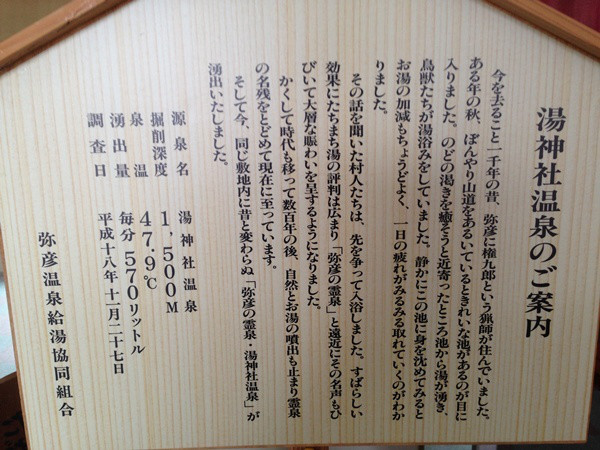 湯神社温泉のご案内
今を去ること一千年の昔、弥彦に権九郎という猟師が住んでいました。
ある年の秋、ぼんやり山道をあるいているときれいな池があるのが目に
入りました。のどの渇きを癒そうと近寄ったところ池から湯が湧き、
鳥獣たちが湯浴みをしていました。静かにこの池に身を沈めてみると
お湯の加減もちょうどよく、一日の疲れがみるみる取れていくのがわか
りました。
その話を聞いた村人たちは、先を争って入浴しました。すばらしい
効果にたちまち湯の評判は広まり「弥彦の霊泉」と遠近にその名声もひ
びいて大層な賑わいを呈するようになりました。
かくして時代も移って数百年の後、自然とお湯の噴出も止まり霊泉
の名残をとどめて現在に至っています。
そして今、同じ敷地内に昔と変わらぬ「弥彦の霊泉・湯神社温泉」が
湧出いたしました。
源泉名 湯神社温泉
掘削深度 1,500M
泉温 47.9℃
湧出量 毎分570リットル
調査日 平成十八年十一月二十七日
弥彦温泉給湯協同組合